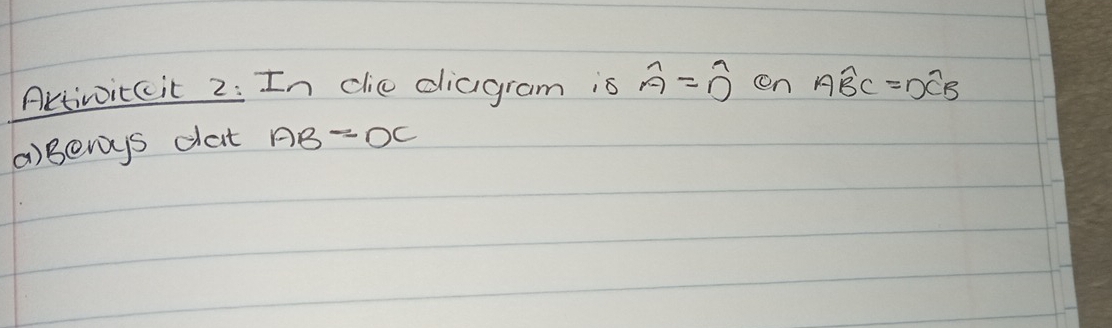 Aktiwiteit 2: In die diagram is Â = D̂ en AB̂C = DĈB
a) Bewys dat AB = DC